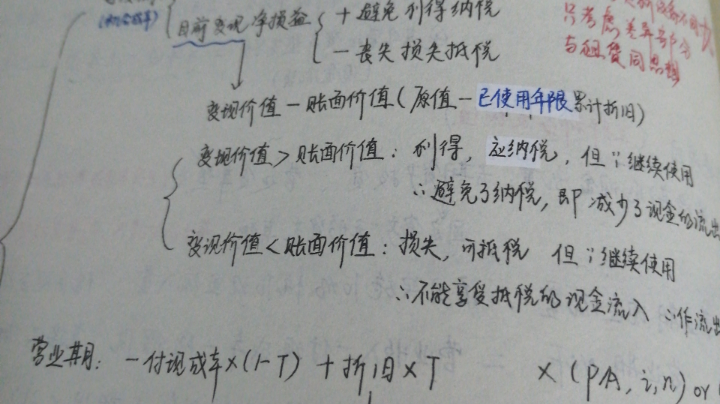 + 避免利得纳税
目前变现净损益
- 丧失损失抵税
只考虑差异部分
与租赁同思想
变现价值 - 账面价值 ( 原值 - 已使用年限累计折旧 )
变现价值 > 账面价值 : 利得, 应纳税, 但∵继续使用
∴避免了纳税, 即减少了现金的流出
变现价值 < 账面价值 : 损失, 可抵税 但∵继续使用
∴不能享受抵税的现金流入 ∴作流出
营业期: - 付现成本×(1-T) + 折旧×T × (P/A, i, n) or